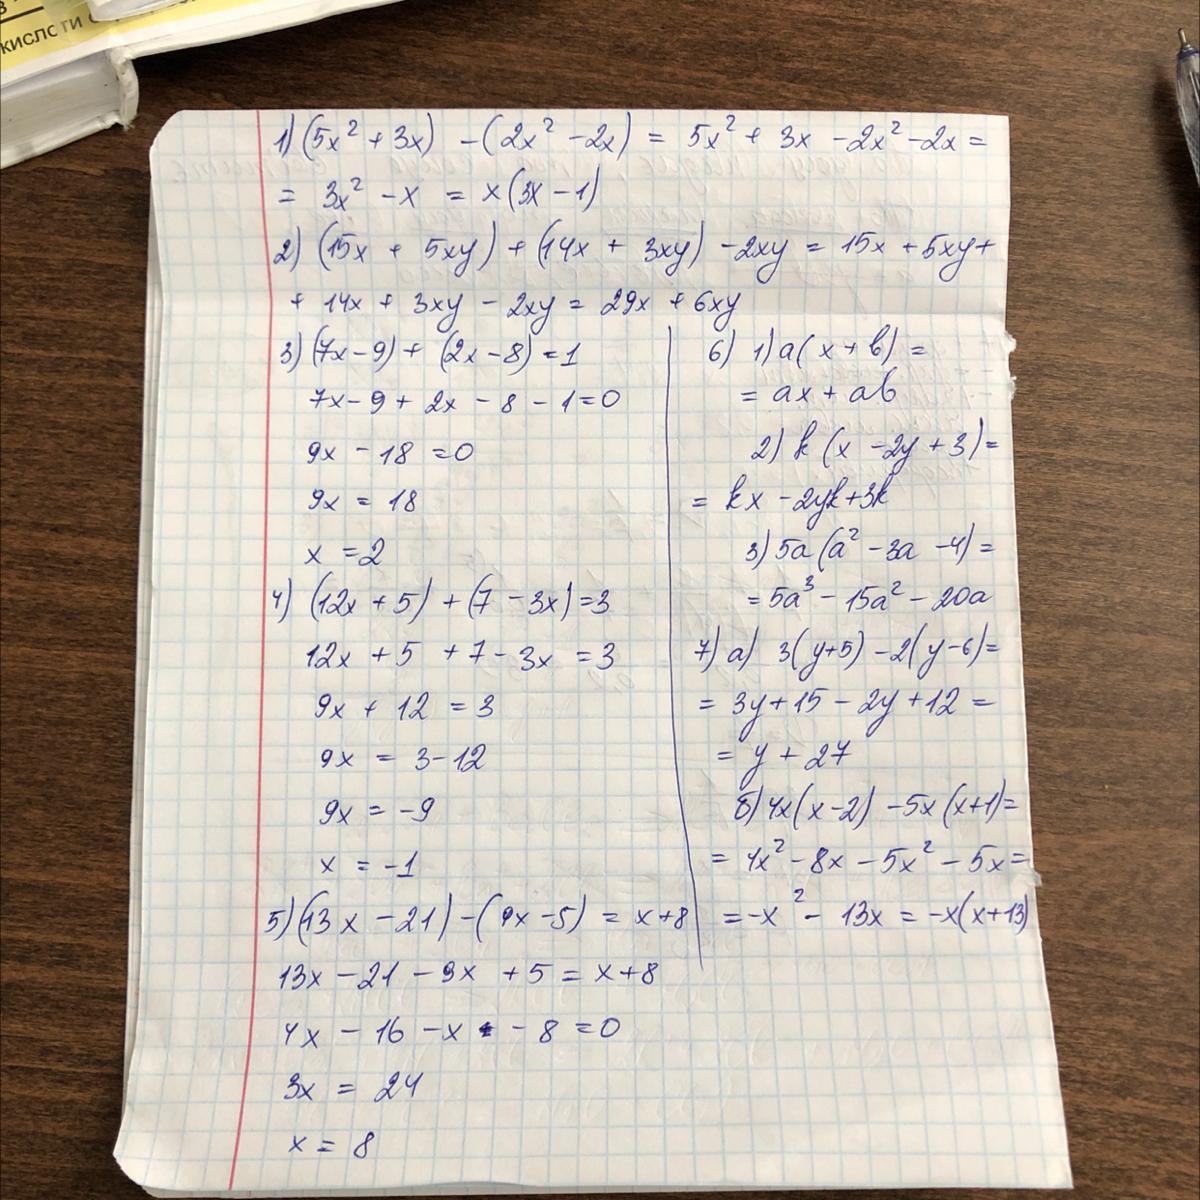 кислоти
1) (5x² + 3x) - (2x² - 2x) = 5x² + 3x - 2x² - 2x =
= 3x² - x = x(3x - 1)
2) (15x + 5xy) + (14x + 3xy) - 2xy = 15x + 5xy +
+ 14x + 3xy - 2xy = 29x + 6xy
3) (7x - 9) + (2x - 8) = 1
7x - 9 + 2x - 8 - 1 = 0
9x - 18 = 0
9x = 18
x = 2
4) (12x + 5) + (7 - 3x) = 3
12x + 5 + 7 - 3x = 3
9x + 12 = 3
9x = 3 - 12
9x = -9
x = -1
5) (13x - 21) - (9x - 5) = x + 8
13x - 21 - 9x + 5 = x + 8
4x - 16 - x - 8 = 0
3x = 24
x = 8
6) 1) a(x + b) =
= ax + ab
2) k(x - 2y + 3) =
= kx - 2yk + 3k
3) 5a(a² - 3a - 4) =
= 5a³ - 15a² - 20a
7) a) 3(y + 5) - 2(y - 6) =
= 3y + 15 - 2y + 12 =
= y + 27
б) 4x(x - 2) - 5x(x + 1) =
= 4x² - 8x - 5x² - 5x =
= -x² - 13x = -x(x + 13)